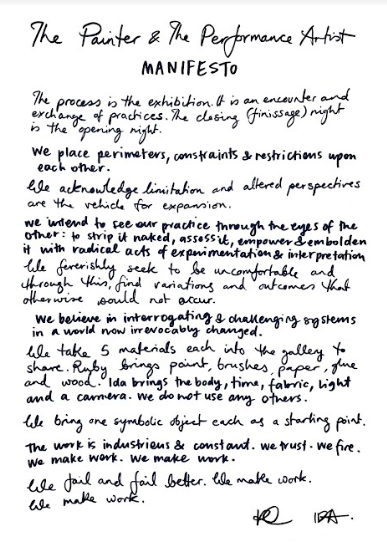 The Painter & The Performance Artist
MANIFESTO
The process is the exhibition. It is an encounter and
exchange of practices. The closing (finissage) night
is the opening night.
We place perimeters, constraints & restrictions upon
each other.
We acknowledge limitation and altered perspectives
are the vehicle for expansion.
we intend to see our practice through the eyes of the
other: to strip it naked, assess it, empower & embolden
it with radical acts of experimentation & interpretation
We feverishly seek to be uncomfortable and
through this, find variations and outcomes that
otherwise would not occur.
We believe in interrogating & challenging systems
in a world now irrevocably changed.
We take 5 materials each into the gallery to
share. Ruby brings paint, brushes, paper, glue
and wood. Ida brings the body, time, fabric, light
and a camera. We do not use any others.
We bring one symbolic object each as a starting point.
The work is industrious & constant. we trust. we fire.
We make work. We make work.
We fail and fail better. We make work.
We make work.
IDA.